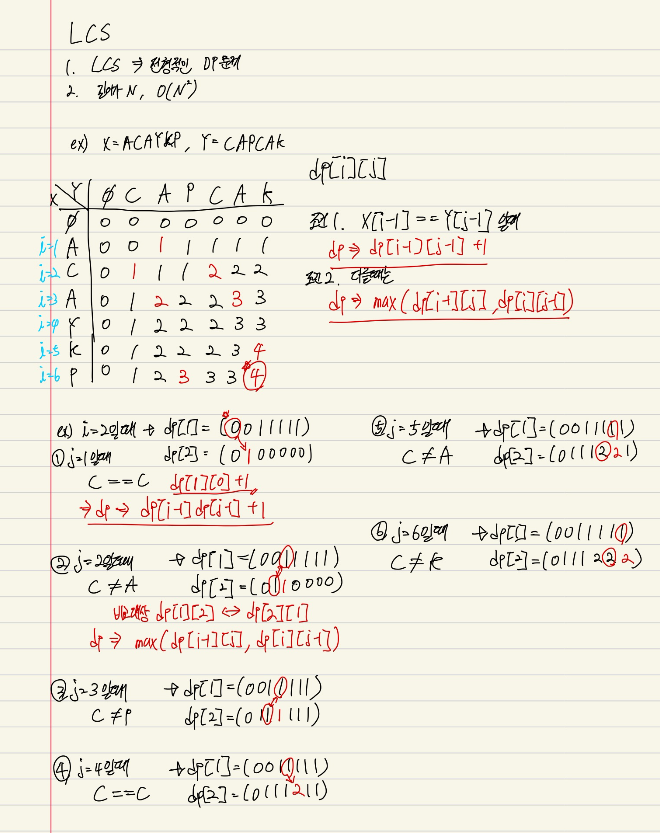 LCS
1. LCS ⇒ 전형적인 DP 문제
2. 길이가 N, O(N²)
ex) X=ACAYKP, Y=CAPCAK
dp[i][j]
X Y ∅ C A P C A K
∅ 0 0 0 0 0 0 0
i=1 A 0 0 1 1 1 1 1
i=2 C 0 1 1 1 2 2 2
i=3 A 0 1 2 2 2 3 3
i=4 Y 0 1 2 2 2 3 3
i=5 K 0 1 2 2 2 3 4
i=6 P 0 1 2 3 3 3 4
조건1. X[i-1] == Y[j-1] 일때
dp ⇒ dp[i-1][j-1] +1
조건2. 다를때는
dp ⇒ max(dp[i-1][j], dp[i][j-1])
ex) i=2일때 → dp[1] = (0 0 1 1 1 1 1)
① j=1일때 dp[2] = (0 1 0 0 0 0 0)
C == C dp[1][0]+1
⇒ dp → dp[i-1]dp[j-1] +1
② j=2일때 → dp[1] = (0 0 1 1 1 1 1)
C ≠ A dp[2] = (0 1 1 0 0 0 0)
비교대상 dp[1][2] ↔ dp[2][1]
dp ⇒ max(dp[i-1][j], dp[i][j-1])
③ j=3일때 → dp[1] = (0 0 1 1 1 1 1)
C ≠ P dp[2] = (0 1 1 1 1 1 1)
④ j=4일때 → dp[1] = (0 0 1 1 1 1 1)
C == C dp[2] = (0 1 1 1 2 1 1)
⑤ j=5일때 → dp[1] = (0 0 1 1 1 1 1)
C ≠ A dp[2] = (0 1 1 1 2 2 1)
⑥ j=6일때 → dp[1] = (0 0 1 1 1 1 1)
C ≠ K dp[2] = (0 1 1 1 2 2 2)